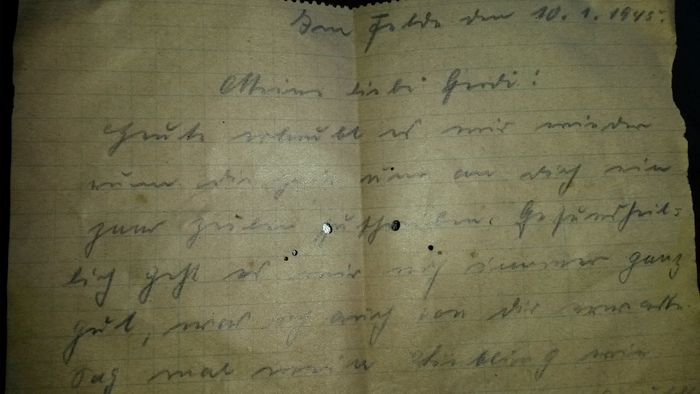 Im Felde den 10.1.1945.
Meine liebe Gerdi!
Heute erlaubt es mir wieder
rum die Zeit um an dich ein
paar Zeilen zu schreiben. Gesundheit=
lich geht es mir noch immer ganz
gut, was ich auch von dir erwarte
Sag mal mein Liebling wie